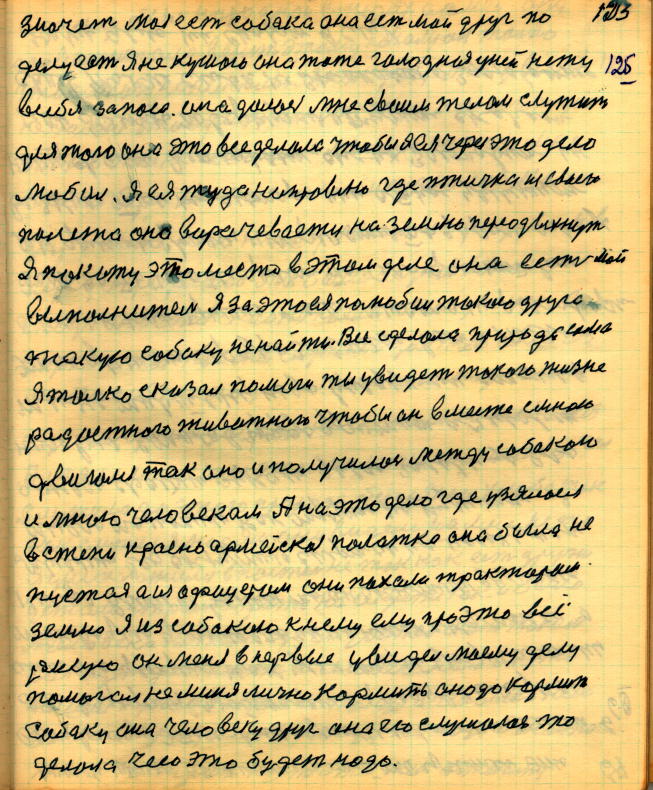 123
значет моя ест собака она ест мой друг по
125
делу ест Я не кушаю она тоже голодная уней нету
всебя запаса. она далась мне своим телом служить
для того она это все делала чтобы я ея через это дело
любил. Я ея туда направляю где птичка и своего
полета она
на землю
Я покажу это место в этом деле она есть мой
выполнител Я за это ея полюбил такого друга
такую собаку не найти. Все сделала природа сама
Я толко сказал помоги ты увидет такого жизне
радостного животного чтобы он вместе смною
двигался так оно и получилос между собакою
и мною человекам А на это дело где узялося
встепи красно армейская полатка она была не
пустая а из офицерам они пахали тракторам
землю Я из собакою к нему ему про это всё
он меня впервые увидел моему делу
помогал не миня лично кормить а надо кормить
собаку она человеку друг она его слухалас то
делала чего это будет надо.